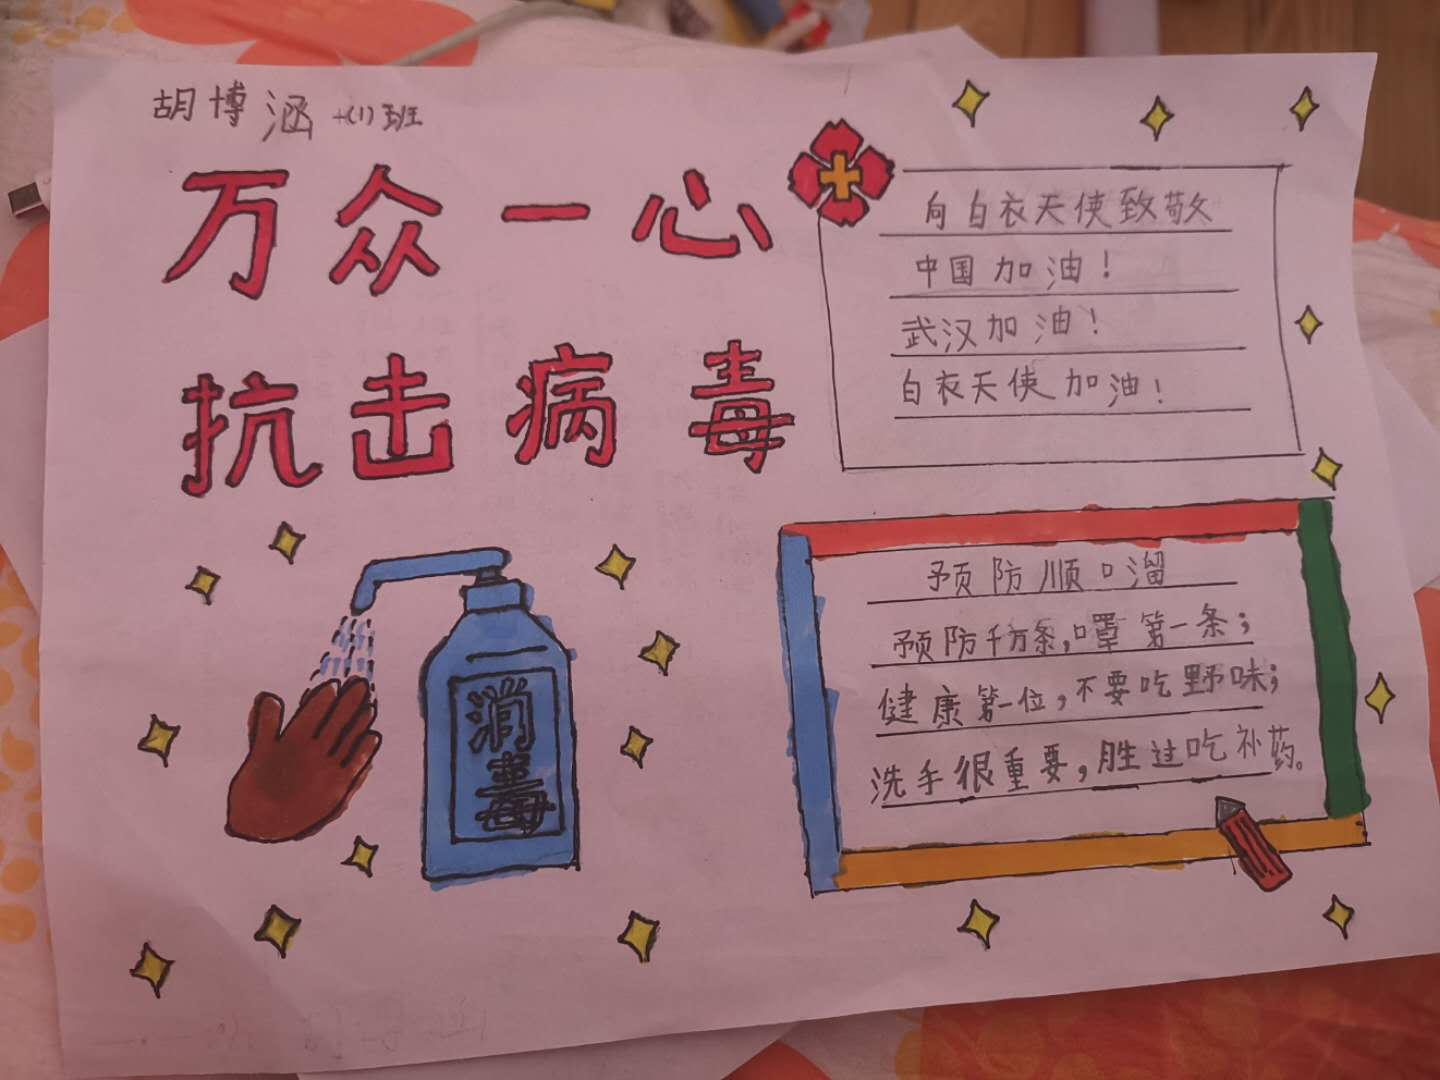 胡博涵 七(1)班
万众一心
抗击病毒
消毒
向白衣天使致敬
中国加油！
武汉加油！
白衣天使加油！
预防顺口溜
预防千万条，口罩第一条；
健康第一位，不要吃野味；
洗手很重要，胜过吃补药。